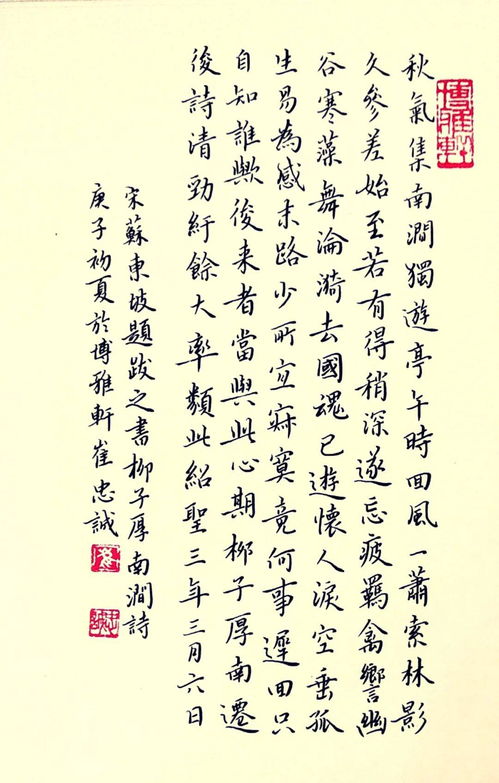 博雅軒
秋氣集南澗獨遊亭午時回風一蕭索林影
久參差始至若有得稍深遂忘疲羈禽響幽
谷寒藻舞淪漪去國魂已遊懷人淚空垂孤
生易為感末路少所宜寂寞竟何事遲回只
自知誰歟後来者當與此心期柳子厚南遷
後詩清勁紆餘大率類此紹聖三年三月六日
宋蘇東坡題跋之書柳子厚南澗詩
庚子初夏於博雅軒崔忠誠